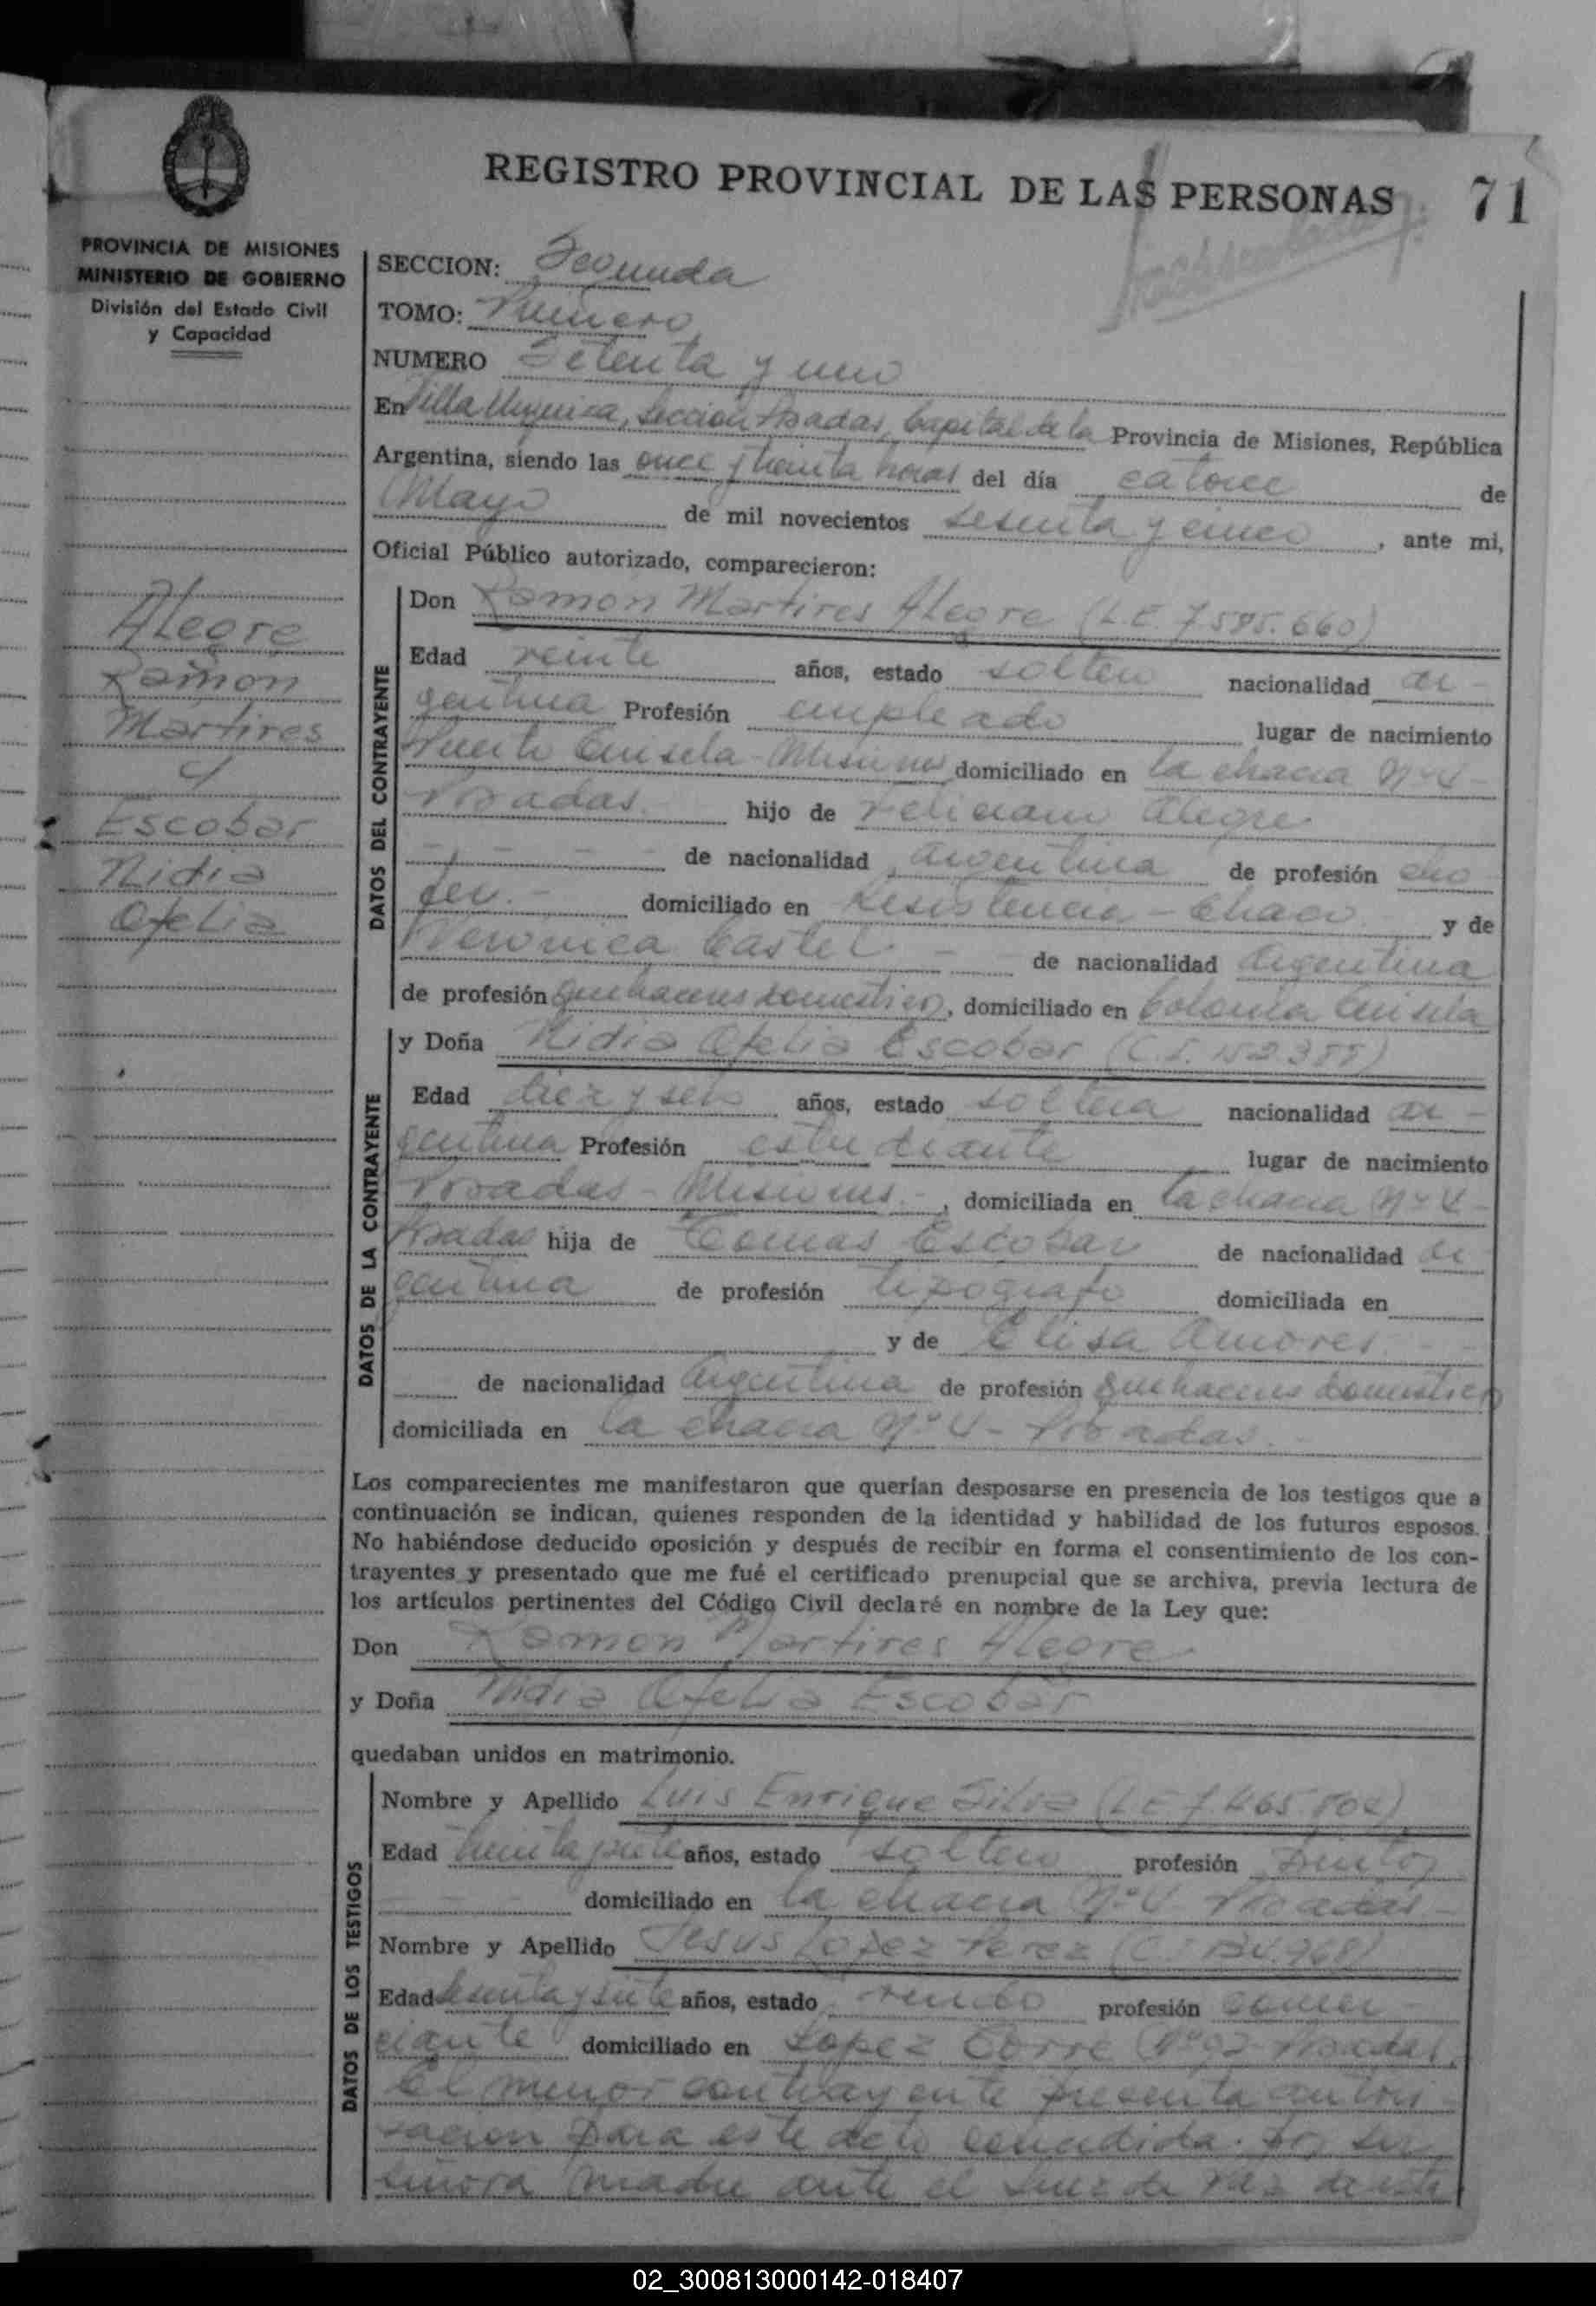 REGISTRO PROVINCIAL DE LAS PERSONAS 71
PROVINCIA DE MISIONES
MINISTERIO DE GOBIERNO
División del Estado Civil
y Capacidad
Alegre
Ramon
Martires
y
Escobar
Nidia
Ofelia
SECCION: Segunda
TOMO: Primero
NUMERO Setenta y uno
En Villa Urquiza, Seccion Posadas, Capital de la Provincia de Misiones, República
Argentina, siendo las once y treinta horas del día catorce de
Mayo de mil novecientos sesenta y cinco, ante mi,
Oficial Público autorizado, comparecieron:
DATOS DEL CONTRAYENTE
Don Ramon Martires Alegre (L.E. 7.595.660)
Edad veinte años, estado soltero nacionalidad ar-
gentina Profesión empleado lugar de nacimiento
Puerto - Misiones domiciliado en la chacra Nº 4-
Posadas. hijo de Feliciano Alegre
- - - - de nacionalidad argentina de profesión cho
fer.- domiciliado en Resistencia - Chaco y de
Veronica Castel - - de nacionalidad argentina
de profesión quehaceres domestico, domiciliado en Colonia
DATOS DE LA CONTRAYENTE
y Doña Nidia Ofelia Escobar (C.I. 152.355)
Edad diez y seis años, estado soltera nacionalidad ar-
gentina Profesión estudiante lugar de nacimiento
Posadas - Misiones.-, domiciliada en la chacra Nº 4-
Posadas hija de Tomas Escobar de nacionalidad ar
gentina de profesión tipografo domiciliada en
y de Elisa Amores. - -
de nacionalidad argentina de profesión quehaceres domestico
domiciliada en la chacra Nº 4 - Posadas.-
Los comparecientes me manifestaron que querían desposarse en presencia de los testigos que a
continuación se indican, quienes responden de la identidad y habilidad de los futuros esposos.
No habiéndose deducido oposición y después de recibir en forma el consentimiento de los con-
trayentes y presentado que me fué el certificado prenupcial que se archiva, previa lectura de
los artículos pertinentes del Código Civil declaré en nombre de la Ley que:
Don Ramon Martires Alegre
y Doña Nidia Ofelia Escobar
quedaban unidos en matrimonio.
DATOS DE LOS TESTIGOS
Nombre y Apellido Luis Enrique Silva (L E 7.465.802)
Edad treinta y siete años, estado soltero profesión pintor
- - - domiciliado en la chacra Nº 4 Posadas -
Nombre y Apellido Jesus Lopez Perez (C.I 134.768)
Edad sesenta y siete años, estado viudo profesión comer-
ciante domiciliado en Lopez Torre Nº 92 - Posadas.
El menor contrayente presenta autori-
sacion para este acto concedida por su
señora madre ante el Juez de Paz de esta
02_300813000142-018407